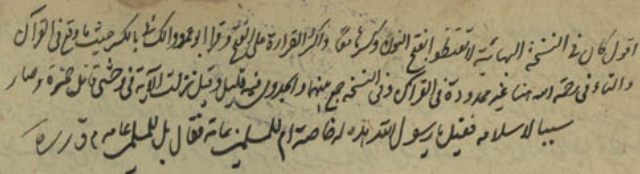 اقول كان في النسخة البهائية لا تقنطوا بفتح النون وكسرها معا واكثر القراءة على الفتح وقرا ابو عمرو والكسائي بالكسر حيث ما وقع في القرآن
والتاء في رحمة الله هنا غير ممدودة في القرآن وفي النسخة جمع بينهما والمجرور فيه قليل وقيل نزلت الآية في وحشي قاتل حمزة وصار
سببا لاسلامه فقيل يا رسول الله هذه له خاصة ام للمسلمين عامة فقال بل للمسلمين عامة